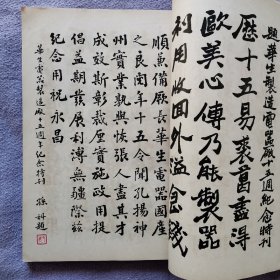 題華生製造電器廠十五週紀念特刊
歷十五易裘葛盡得
歐美心傳乃能製器
利用收回外溢金錢
備厥長華生電器國產
之良閱年十五今聞孔揚神
州實業孰與恢張人盡其才
成效斯彰裁度實施政用提
倡益期發展利溥無疆際茲
紀念用祝永昌
華生電器製造廠十五週年紀念特刊 孫科題